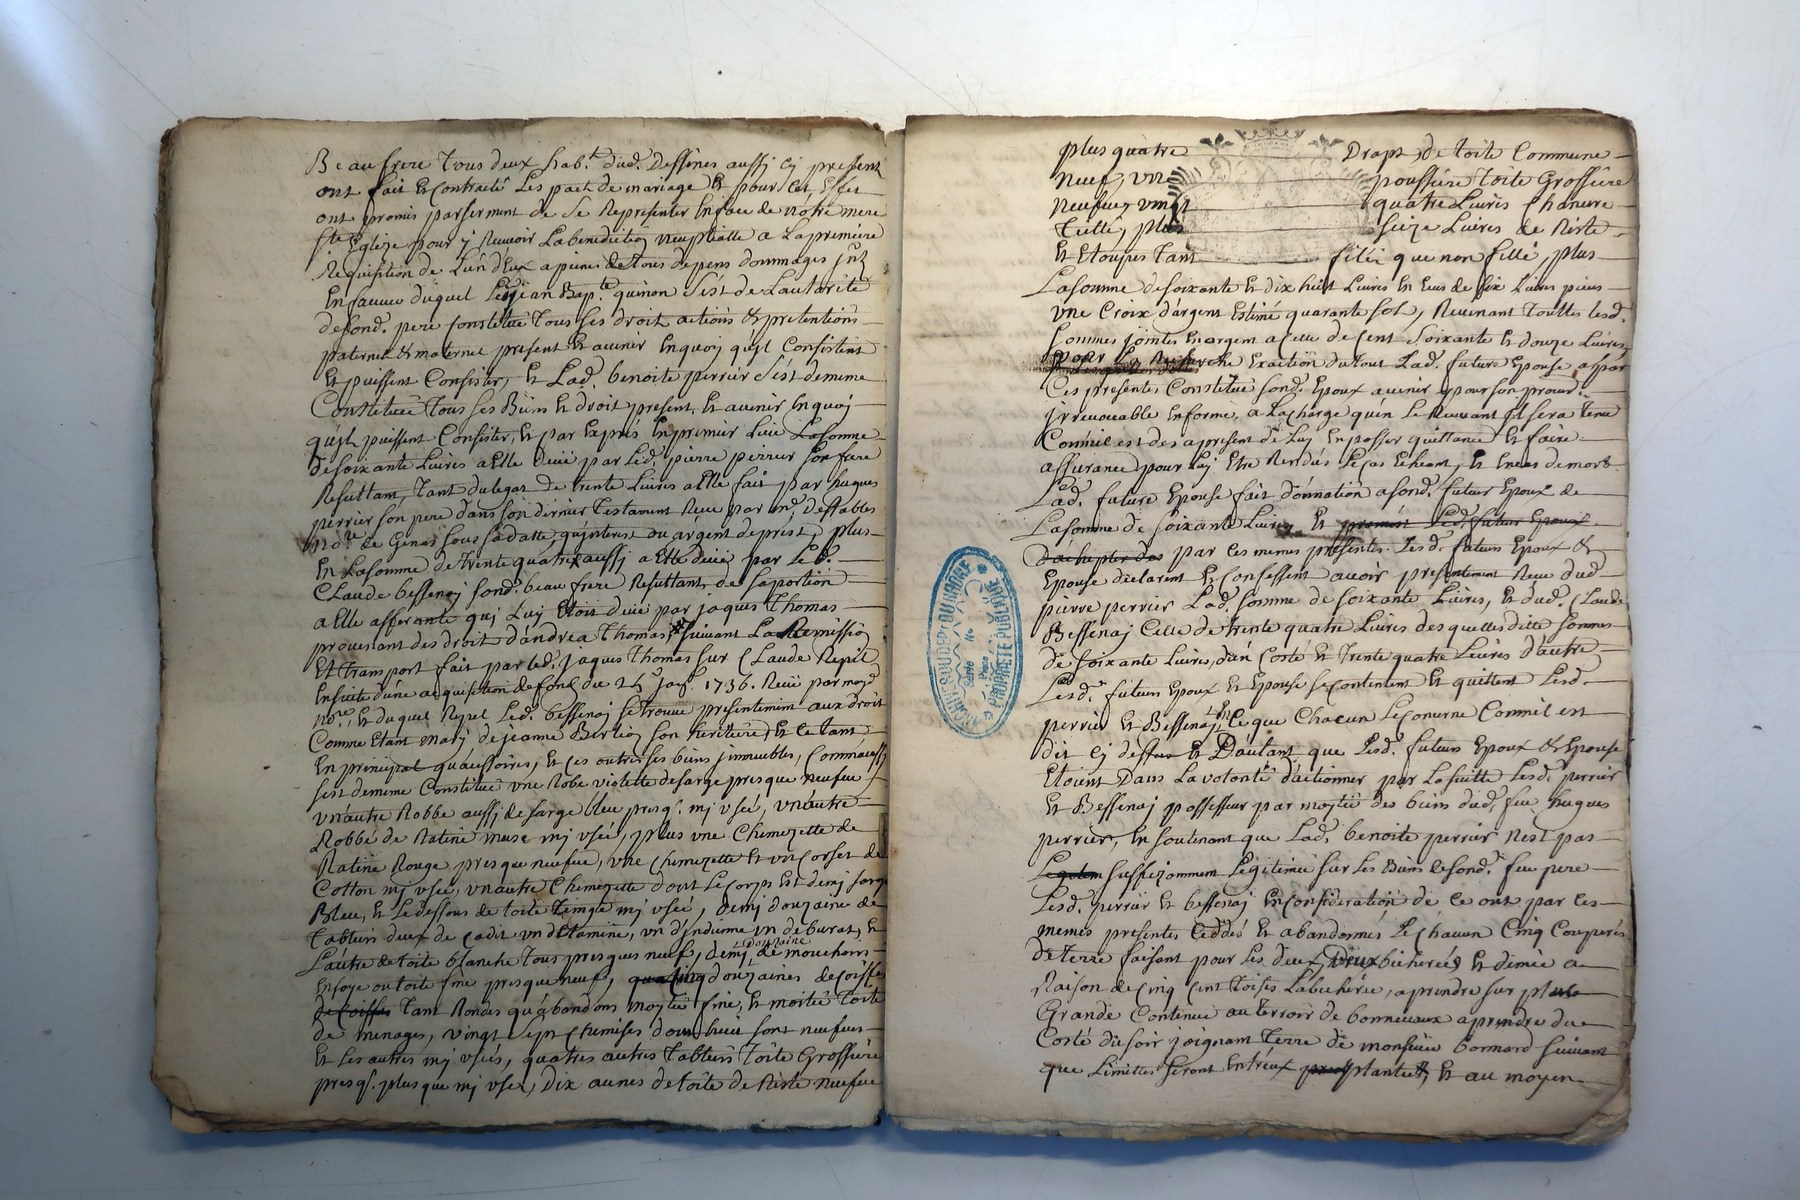 Beaufrere tous deux hab.t dud. Dessines aussy cy present
ont fait et contracté Les pact de mariage et pour cet effet
ont promis parserment de se Representer Enface de nôtre mere
ste Eglize pour y Recevoir Labenediction nuptialle a Lapremiere
Requisition de Lun deux apeines detous depens dommages jnt
Enfaveur duquel Led. jean Bap.te quinon sest de Lautorité
desond. pere constitué tous ses droit actions & pretentions
paternel & maternel present et avenir Enquoy quyl Consistent
Et puissent Consister, et Lad. benoite perrier sest demême
Constituée tous ses Biens et droit present, et avenir Enquoy
quyls puissent Consister, et par Exprés Enpremier Lieu Lasomme
desoixante Livres aElle deüe par Led. pierre perrier son frere
Resultant, tant dulegat de trente Livres aElle fait par hugues
perrier son pere dans son dernier testament Receu par m.e Destables
no.re de Genas sous sadatte quinterest ou argent deprest, plus
En Lasomme detrente quatre aussy aElle deüe par Led.
Claude bessenay sond. beau frere Resultant, de saportion
aElle afferante quy Luy Etoit deüe par jaques Thomas
provenant des droit dandrea Thomas suivant La Remission
Et transport fait par led. jaques Thomas sur Claude Repel
Ensuitte dune acquisition defond du 25 jan. 1736. Receu par moyd
no.re, et duquel Repel Led. bessenay setrouve presentement aux droit
Comme Etant mary dejeanne Berlioz son heritiere, et ce tant
En principal quacessoires, et ces outres ses biens jmmeubles, Commaussy
sest demême Constituée une Robe violette desarge presque neufve
unautre Robbe aussy de sarge bleu presq. my usée, unautre
Robbe de Ratine my usée, plus une Chemizette de
Ratine Rouge presque neufve, une Chemizette et un Corset de
Cotton my usée, unautre Chemizette dont Lecorps Est demy sarge
Bleue, et Ledessous de toile teingte my usée, demy douzaine de
tabliers deux de cadis un detamine, un dindienne un deburat, et
Lautre detoile blanche tous presques neuf, demy douzaine de mouchoirs
Ensoye ou toile fine presque neuf, cinq douzaines decoiffes
de Coiffes tant Rondes quabandons moytié fine, et moitié toile
de menages, vingt sept chemises dont huit sont neufves
Et Les autres my usées, quatres autres tabliers toile Grossiere
presq. plus que my usez, Dix aunes detoile de Riste neufve
plus quatre Draps de toile Commune
neuf, un poussiere toile Grossiere
neufve, vingt quatre Livres Chanvre
tillé, plus seize Livres de Riste
Et Etoupes tant filée que non fillé, plus
Lasomme desoixante et dix huit Livres en Ecus de six Livres piece
une Croix dargent Estimé quarante sol, Revenant touttes lesd.
sommes jointes Enargent aCelle decent soixante et douze Livres,
pour La Recherche Exaction dutout Lad. future Epouse a par
Ces presentes Constitué sond. Epoux avenir pour son procur.
jrrevocable Enforme, aLacharge quen Le Recevant jl sera tenu
Comme il est des apresent de Luy En passer quittance et faire
assurance, pour Luy Etre Rendües Lecas Echeant, et Encas demort
Lad. future Epouse fait donnation asond. futur Epoux de
Lasomme de soixante Livres, Et promis Led. futur Epoux
dachepter des par ces memes presentes Lesd. futurs Epoux &
Epouse declarent et Confessent avoir presentement Receu dud
pierre perrier Lad. somme de soixante Livres, et dud. Claude
Bessenay Celle de trente quatre Livres des quelles ditte sommes
de soixante Livres, dun Costé et trente quatre Livres dautre
Lesd. futurs Epoux et Epouse secontentent et quittent Lesd.
perrier et Bessenay En ce que Chacun Leconcerne Comme il est
dit cy dessus et Dautant que Lesd. futurs Epoux & Epouse
Etoient Dans La volonté dactionner par Lasuitte Lesd. perrier
Et Bessenay possesseur par moytié des biens dud. feu hugues
perrier, En soutenant que Lad. benoite perrier nest pas
suffisamment Legitimée sur Les Biens desond. feu pere
Lesd. perrier et bessenay Enconsideration de ce ont par ces
memes presentes Ceddés et abandonnés Chacun Cinq Couperés
de terre faisant pour Les deux, deux bicherées et demie a
Raison decinq cent toises Labicherée, aprendre sur plus
Grande Contenüe auterroir de bonneveaux aprendre du
Costé du soir joignant terre de monsieur bonnard suivant
que Limittes seront Entreux plantées, et au moyen
ARCHIVES DU DEP.T DU RHONE
PROPRIETE PUBLIQUE